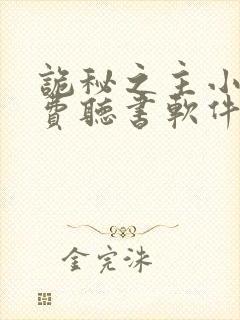 詭秘之主小
費聽書軟件
金完洙